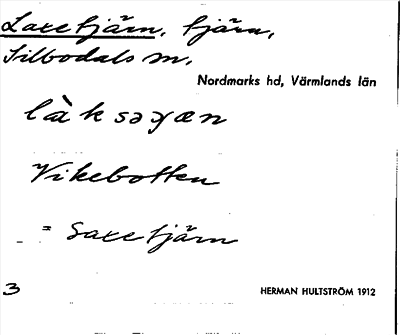 Laxetjärn, tjärn,
Silbodals sn,
Nordmarks hd, Värmlands län
Vikebotten
= Saxetjärn
3 HERMAN HULTSTRÖM 1912